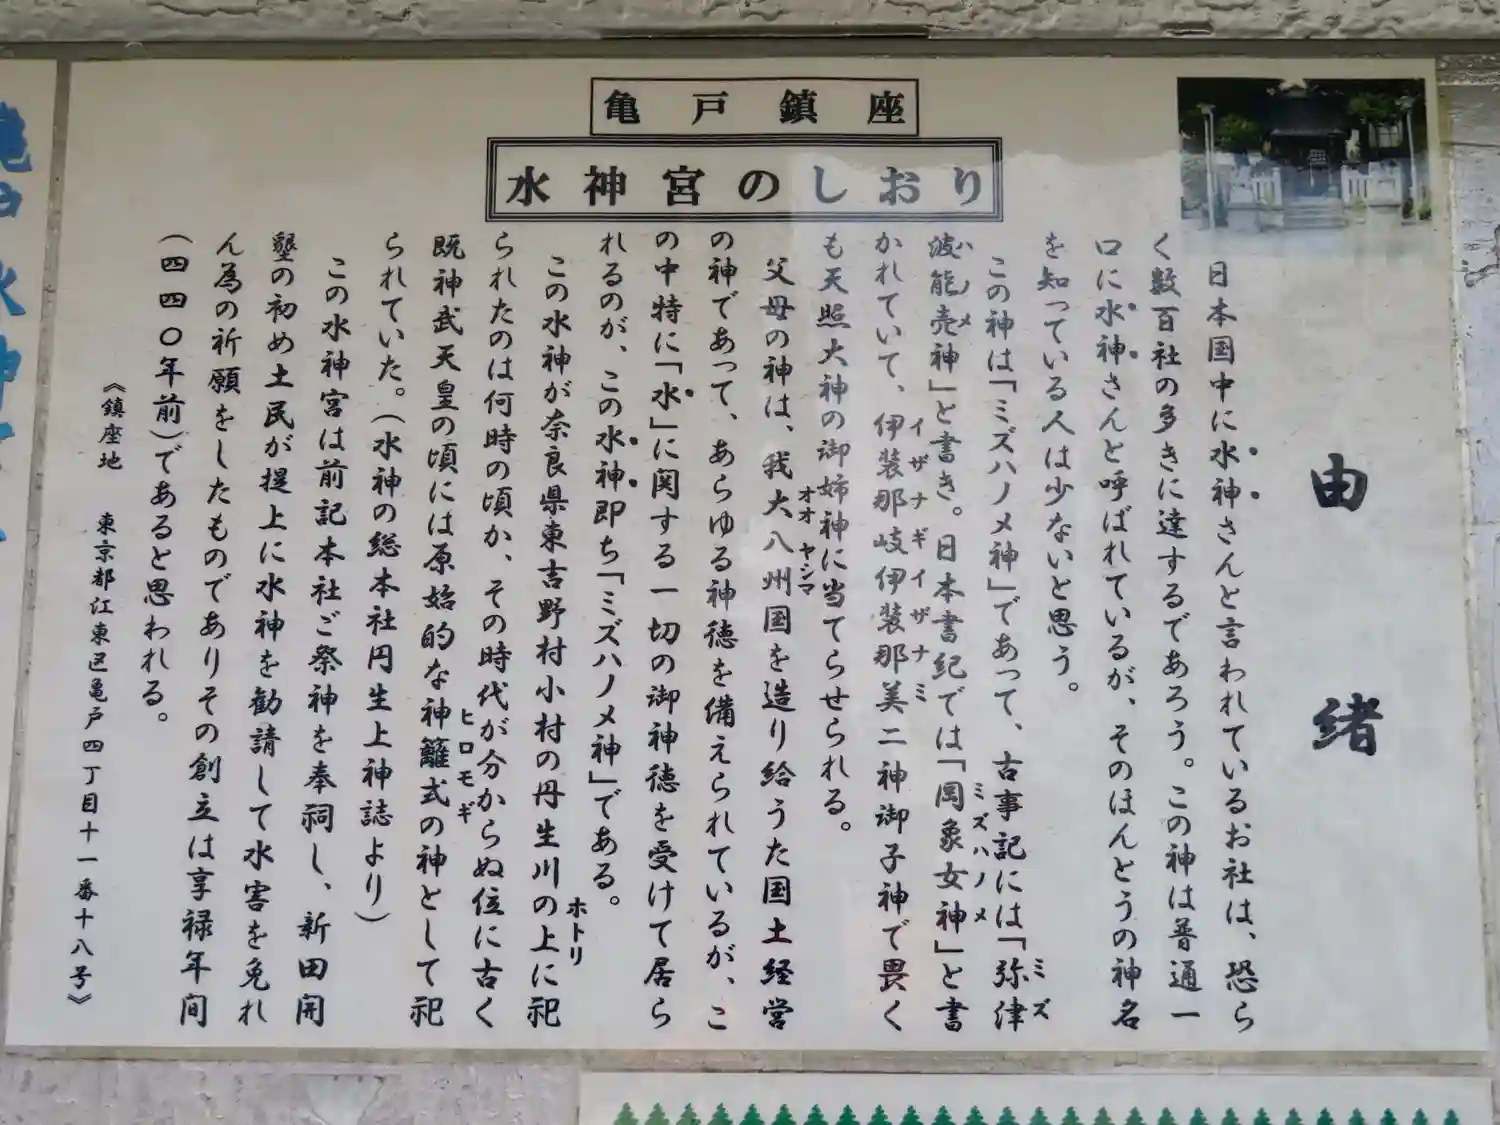 亀戸鎮座
水神宮のしおり
由緒
日本国中に水神さんと言われているお社は、恐ら
く数百社の多きに達するであろう。この神は普通一
口に水神さんと呼ばれているが、そのほんとうの神名
を知っている人は少ないと思う。
この神は「ミズハノメ神」であって、古事記には「弥津
ミズ
波能売神」と書き。日本書紀では「罔象女神」と書
ハノメ
ミズハノメ
かれていて、伊装那岐伊装那美二神御子神で畏く
イザナギイザナミ
も天照大神の御姉神に当てらせられる。
父母の神は、我大八州国を造り給うた国土経営
オオヤシマ
の神であって、あらゆる神徳を備えられているが、こ
の中特に「水」に関する一切の御神徳を受けて居ら
れるのが、この水神即ち「ミズハノメ神」である。
この水神が奈良県東吉野村小村の丹生川の上に祀
ホトリ
られたのは何時の頃か、その時代が分からぬ位に古く
既神武天皇の頃には原始的な神籬式の神として祀
ヒロモギ
られていた。（水神の総本社円生上神誌より）
この水神宮は前記本社ご祭神を奉祠し、新田開
墾の初め土民が提上に水神を勧請して水害を免れ
ん為の祈願をしたものでありその創立は享禄年間
（四四〇年前）であると思われる。
《鎮座地　東京都江東区亀戸四丁目十一番十八号》